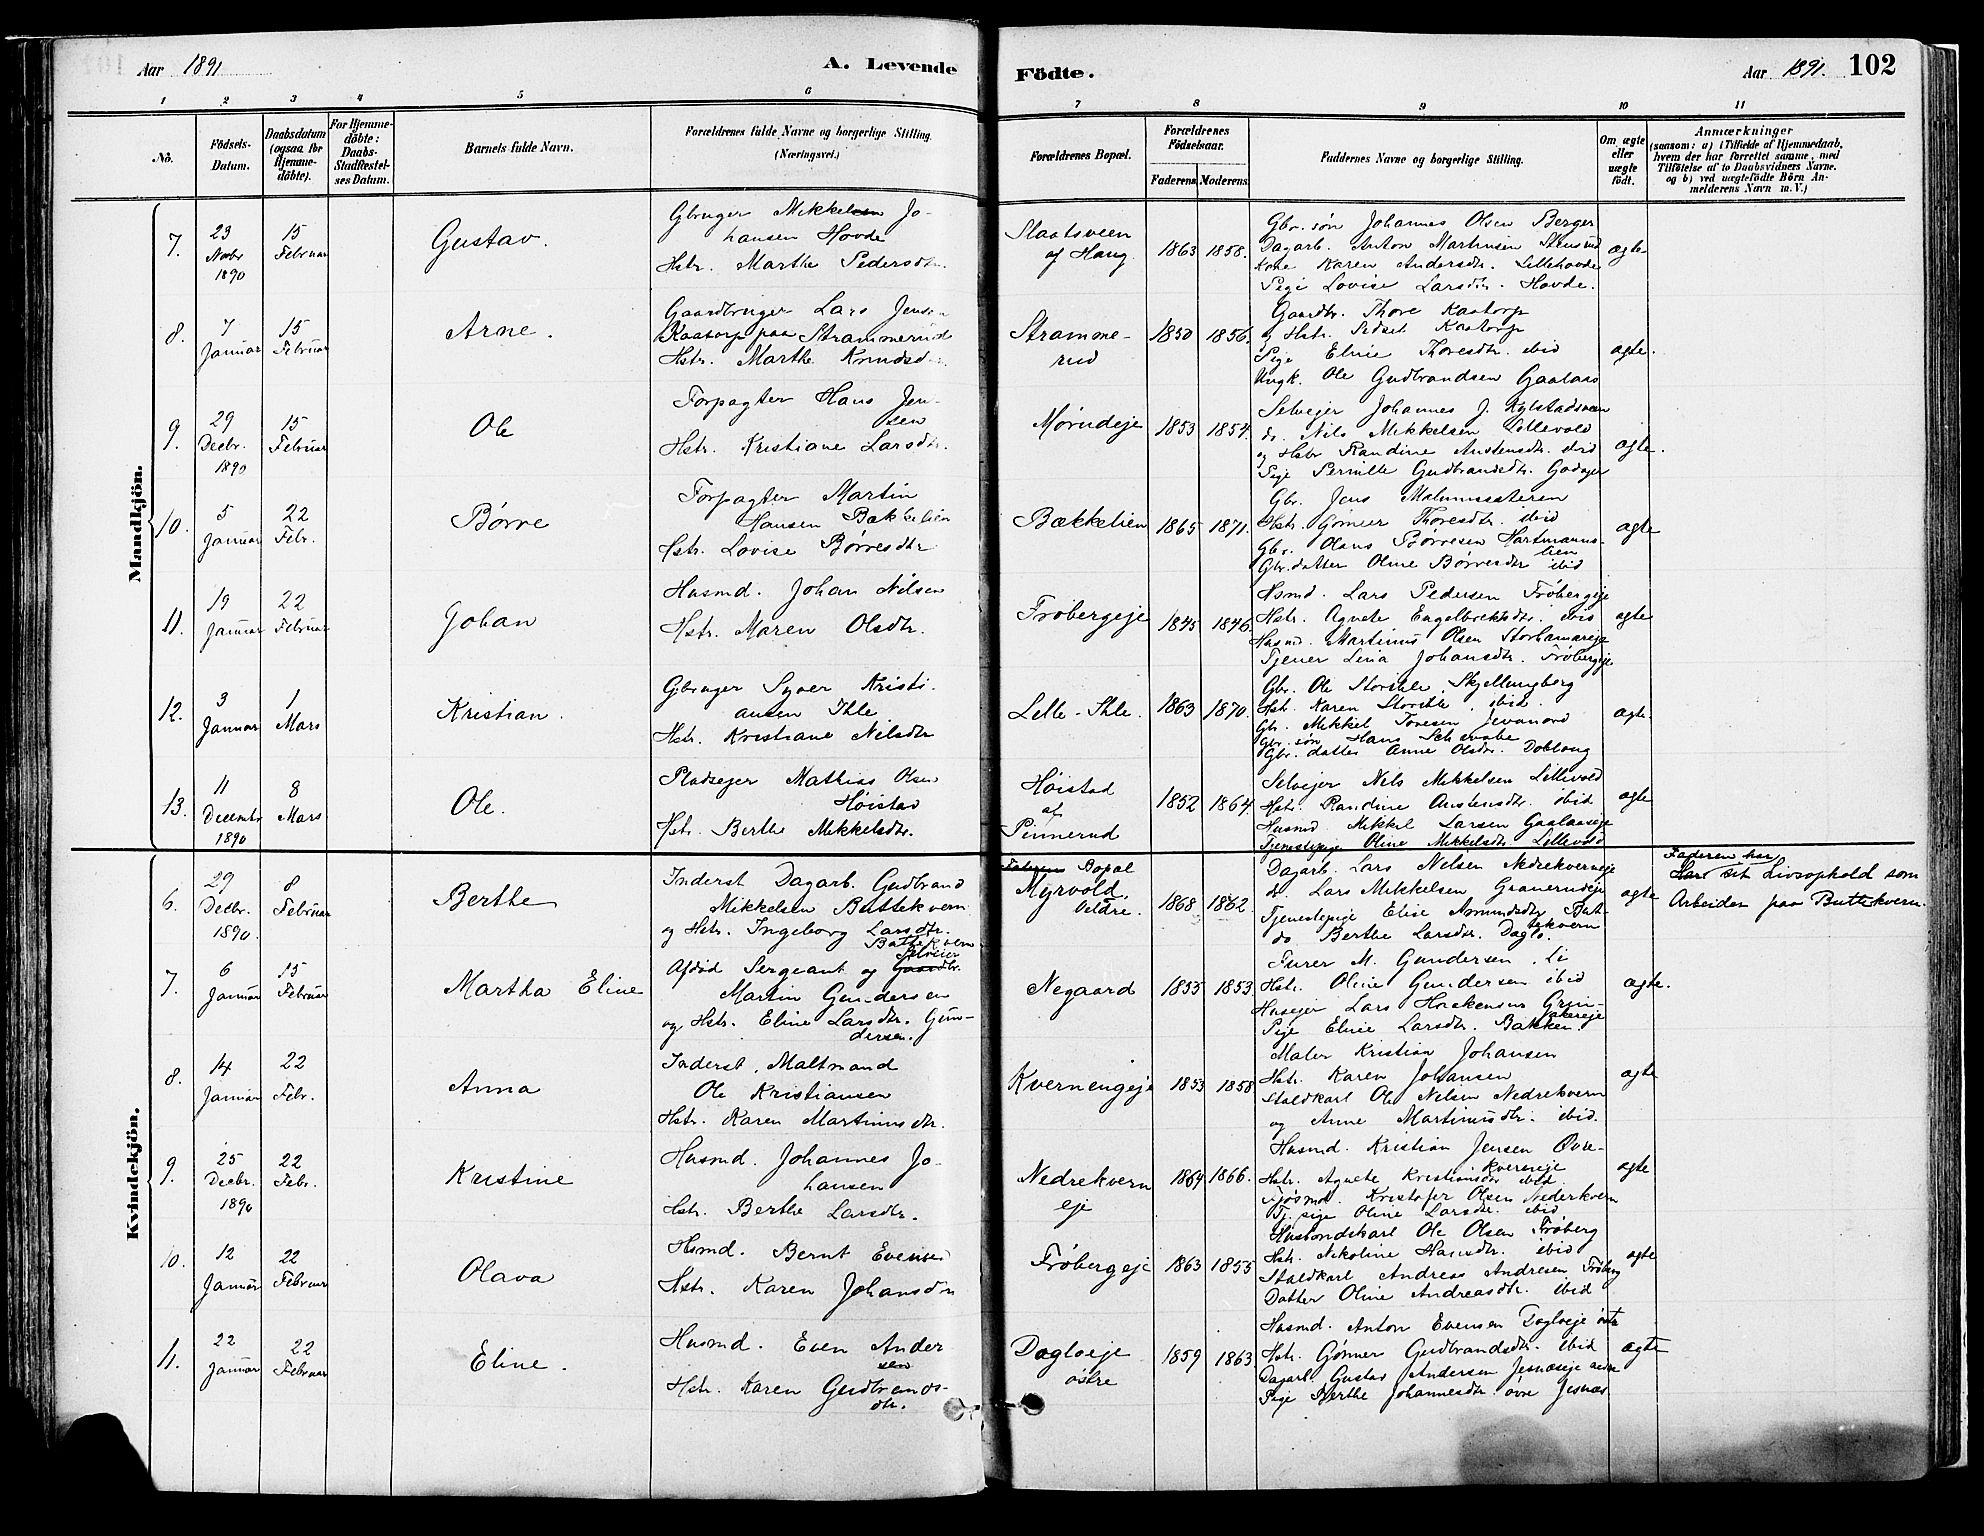 Aar 1891
A. Levende
Födte.
Aar 1891.
102
1 2 3 4 5 6 7 8 9 10 11
No.
Födsels-Datum.
Daabsdatum (ogsaa for Hjemme-döbte).
For Hjemme-döbte: Daabs-Stadfæstel-ses Datum.
Barnets fulde Navn.
Forældrenes fulde Navne og borgerlige Stilling. (Næringsvei.)
Forældrenes Bopæl.
Forældrenes Födselsaar.
Faderens Moderens
Faddernes Navne og borgerlige Stilling.
Om ægte eller uægte födt.
Anmærkninger
(saasom: a) i Tilfælde af Hjemmedaab,
hvem der har forrettet samme, med
Tilföielse af to Daabsvidners Navne,
og b) ved uægtefödte Börn An-
melderens Navn m. V.)
Mandkjön.
7.
23 Novbr 1890
15 Februar
Gustav.
Gbruger Mikkelsen Jo-
hansen Hovde
Hstr. Marthe Pedersdtr.
Slaatsveen
af Haug
1863 1858.
Gbr. søn Johannes Olsen Berger
Dagarb. Anton Martinsen Stensrud
Kone Karen Andersdtr. Lillehovde
Pige Lovise Larsdtr. Hovde.
ægte
8.
7 Januar
15 Februar
Arne.
Gaardbruger Lars Jensen
Kaatorp paa Strammerud
Hstr. Marthe Knudsd
Stramme-
rud
1850 1856.
Gaardbr. Thore Kaatorp
og Hstr. Sidsel Kaatorp
Pige Eline Thoresdtr. ibid
Ungk. Ole Gudbrandsen Gaalaas
ægte.
9.
29 Decbr. 1890
15 Februar
Ole
Forpagter Hans Jen-
sen
Hstr. Kristiane Larsdtr.
Mørudeje
1853 1854.
Selvejer Johannes J. Kylstadsveen
do. Nils Mikkelsen Lillevold
og Hstr Randine Austensdtr. ibid
Pige Pernille Gudbrandsdtr.
ægte.
10.
5 Januar
22 Febr.
Børre
Forpagter Martin
Hansen Bækkelien
Hstr. Lovise Børresdtr
Bækkelien
1865 1871.
Gbr. Jens Malumssæteren
Hstr. Gønner Thoresdtr. ibid
Gbr. Olaus Børresen Hartmanns-
lien
Gbr. datter Oline Børresdtr ibid
ægte
11.
19 Januar
22 Februar
Johan
Husmd. Johan Nilsen
Hstr. Maren Olsdtr.
Frøbergeje
1845 1846.
Hsmd. Lars Pedersen Frøbergeje
Hstr. Agnete Engelbrektsdtr. ibid
Husmd. Martinus Olsen Storhamareje
Tjener Lina Johansdtr. Frøbergeje
ægte
12.
3 Januar
1 Mars
Kristian.
Gbruger Syver Kristi-
ansen Ihle
Hstr. Kristiane Nilsdtr
Lille-Ihle.
1863 1870.
Gbr. Ole Storihle, Skjellungberg
Hst. Karen Storihle, ibid.
Gbr. Mikkel Toresen Jevanord
Gbr. søn Hans
Gbr. datter Anne Olsdtr. Doblaug
ægte.
13.
11 Decembr 1890
8 Mars
Ole.
Pladsejer Mathias Olsen
Høistad
Hstr. Berthe Mikkelsdtr.
Høistad
af
Pinnerud
1852 1864.
Selvejer Nils Mikkelsen Lillevold
Hstr. Randine Austensdtr. ibid
Husmd Mikkel Larsen Gaalaaseje
Tjenestepige Oline Mikkelsdtr Lillevold
ægte
Kvindekjön.
6.
29 Decbr. 1890.
8 Februar
Berthe
Inderst Dagarb. Gudbrand
Mikkelsen Buttekvern
og Hstr. Ingeborg Larsdtr.
Buttekvern
Faderens Bopæl
Myrvold,
Veldre.
1868 1862.
Dagarb. Lars Nilsen Nedrekverneje
do. Lars Mikkelsen Granerudeje
Tjenestepige Elise Amundsdtr But-
tekvern
do Berthe Larsdtr. Dagl.
ægte
Faderen har
sit Livsophold som
Arbeider paa Buttekvern.
7.
6 Januar
15 Februar
Martha Eline
Selveier
Afdød Sergeant og Gaardbr.
Martin Gundersen
og Hstr. Eline Larsdtr. Gun-
dersen.
Negaard
1855 1853.
Furer M. Gundersen, Li
Hstr. Oline Gundersen ibid
Husejer Lars Haakensen
Pige Eline Larsdtr. Bakken.
ægte.
8.
14 Januar
22 Febr.
Anna
Inderst, Maltmand
Ole Kristiansen
Hstr. Karen Martinusdtr.
Kvernengeje
1853 1858
Maler Kristian Johansen
Hstr. Karen Johansen
Staldkarl Ole Nilsen Nedrekvern
og Anne Martinusdtr. ibid.
ægte
9.
25 Decbr. 1890
22 Febr.
Kristine
Husmd. Johannes Jo-
hansen
Hstr. Berthe Larsdtr.
Nedrekvern
eje
1864 1866.
Husmd. Kristian Jensen Øvre-
kverneje
Hstr. Agnete Kristiansdtr ibid.
Fjøsmd. Kristofer Olsen Nederkvern
Tj. pige Oline Larsdtr. ibid.
ægte
10.
12 Januar
22 Februar
Olava
Hsmd. Bernt Evensen
Hstr. Karen Johansdtr
Frøbergeje
1863 1855
Husmandskarl Ole Olsen Frøberg
Hstr. Nikoline Hansdtr. ibid
Staldkarl Andreas Andresen Frøberg
Datter Oline Andreasdtr. ibid
ægte
11.
22 Januar
22 Februar
Eline.
Husmd. Even Ander
sen
Hstr. Karen Gudbrands-
dtr.
Dagloeje
østre
1859 1863.
Husmd. Anton Evensen Dagloeje østre
Hstr. Gønner Gudbrandsdtr. ibid
Dagarb. Gustav Andersen Jesnæseje nedre
Pige Berthe Johannesdtr. øvre Jesnæs
ægte